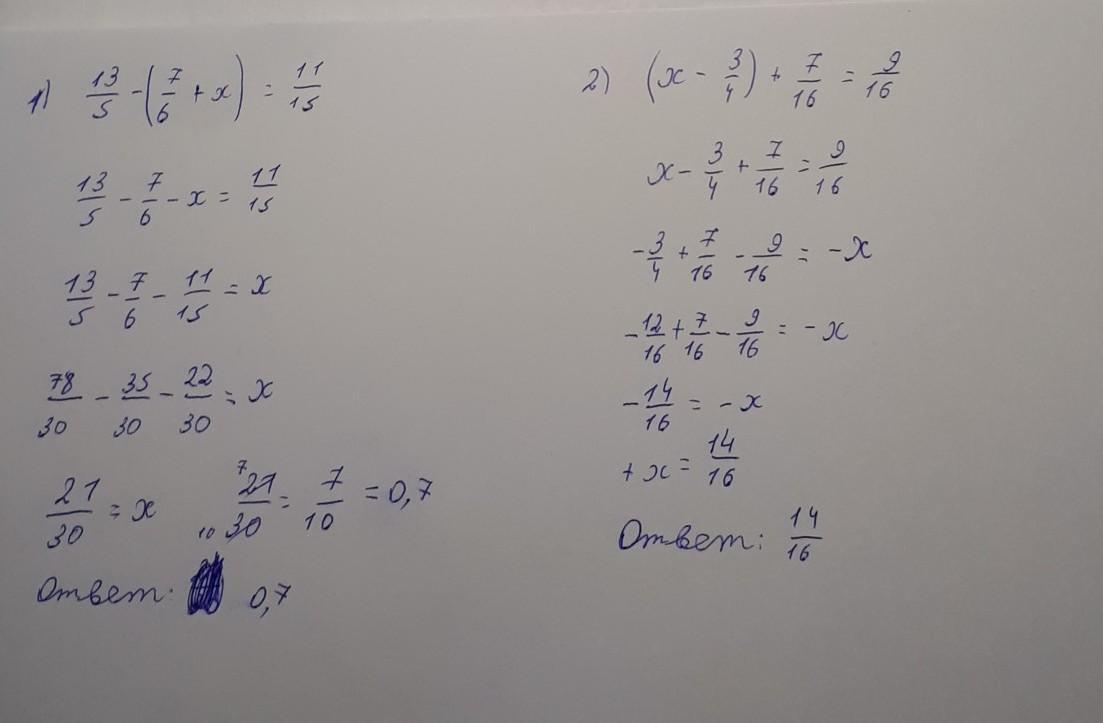 1) 13/5 - (7/6 + x) = 11/15
13/5 - 7/6 - x = 11/15
13/5 - 7/6 - 11/15 = x
78/30 - 35/30 - 22/30 = x
21/30 = x 21/30 = 7/10 = 0,7
7
10
Ответ: 0,7
2) (x - 3/4) + 7/16 = 9/16
x - 3/4 + 7/16 = 9/16
-3/4 + 7/16 - 9/16 = -x
-12/16 + 7/16 - 9/16 = -x
-14/16 = -x
+x = 14/16
Ответ: 14/16